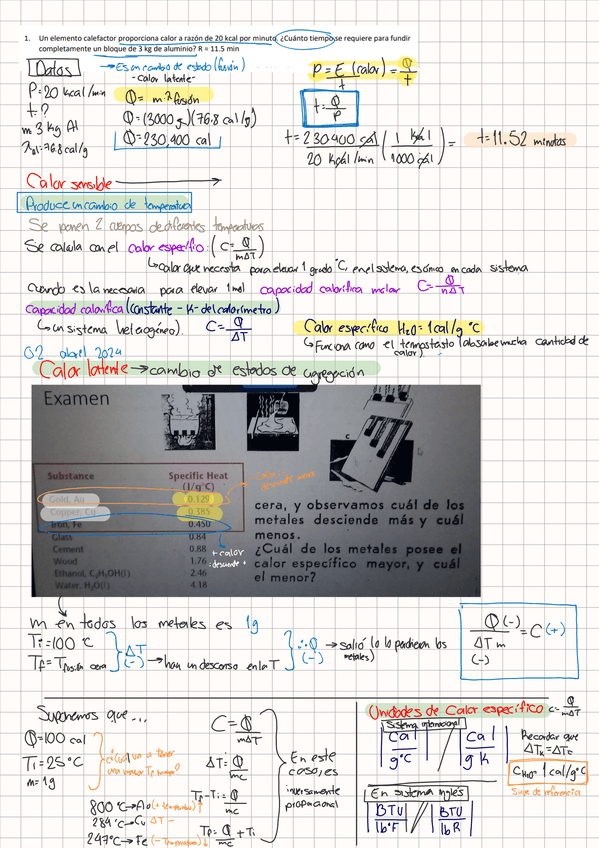 1. Un elemento calefactor proporciona calor a razón de 20 kcal por minuto. ¿Cuánto tiempo se requiere para fundir
completamente un bloque de 3 kg de aluminio? R = 11.5 min
Datos
→ Es un cambio de estado (fusión)
- Calor latente -
P = 20 kcal/min
t = ?
m 3 kg Al
λAl = 76.8 cal/g
Q = m·λ fusión
Q = (3000 g)(76.8 cal/g)
Q = 230,400 cal
P = E/t (calor) = Q/t
t = Q/P
t = 230400 cal / 20 kcal/min (1 kcal / 1000 cal) = t = 11.52 minutos
Calor sensible →
Produce un cambio de temperatura
Se ponen 2 cuerpos de diferentes temperaturas
Se calcula con el calor específico: (C = Q/mΔT)
↳ calor que necesita para elevar 1 grado °C, en el sistema, es único en cada sistema
Cuando es la necesaria para elevar 1 mol capacidad calorífica molar C = Q/nΔT
Capacidad calorífica (constante - K - del calorímetro)
↳ un sistema heterogéneo). C = Q/ΔT
Calor específico H2O = 1 cal/g °C
↳ Funciona como el (absorbe mucha cantidad de
calor)
02 abril 2024
Calor latente → cambio de estados de agregación
Examen
Substance Specific Heat
(J/g°C)
Gold, Au 0.129
Copper, Cu 0.385
Iron, Fe 0.450
Glass 0.84
Cement 0.88
Wood 1.76
Ethanol, C2H5OH(l) 2.46
Water, H2O(l) 4.18
+ calor
desciende +
C
cera, y observamos cuál de los
metales desciende más y cuál
menos.
¿Cuál de los metales posee el
calor específico mayor, y cuál
el menor?
m en todos los metales es 1g
Ti = 100 °C
Tf = Tfusión cera
ΔT
(-)
→ hay un descenso en la T
∴ Q
(-)
→ salió (o lo perdieron los
metales)
Q (-) / ΔT m (-) = C (+)
Suponemos que...
Q = 100 cal
Ti = 25 °C
m = 1g
¿Cuál va a tener
una mayor Tf
800 °C → Au (+ temperatura) ↑
284 °C → Cu ΔT -
247 °C → Fe (- Temperatura) ↓
C = Q/mΔT
ΔT = Q/mC
Tf - Ti = Q/mC
Tf = Q/mC + Ti
En este
caso, es
inversamente
proporcional
Unidades de Calor específico C = Q/mΔT
Sistema internacional
cal/g°C // cal/g K
Recordar que
ΔTK = ΔTC
CH2O = 1 cal/g°C
de referencia
En sistema Inglés
BTU/lb°F // BTU/lb R